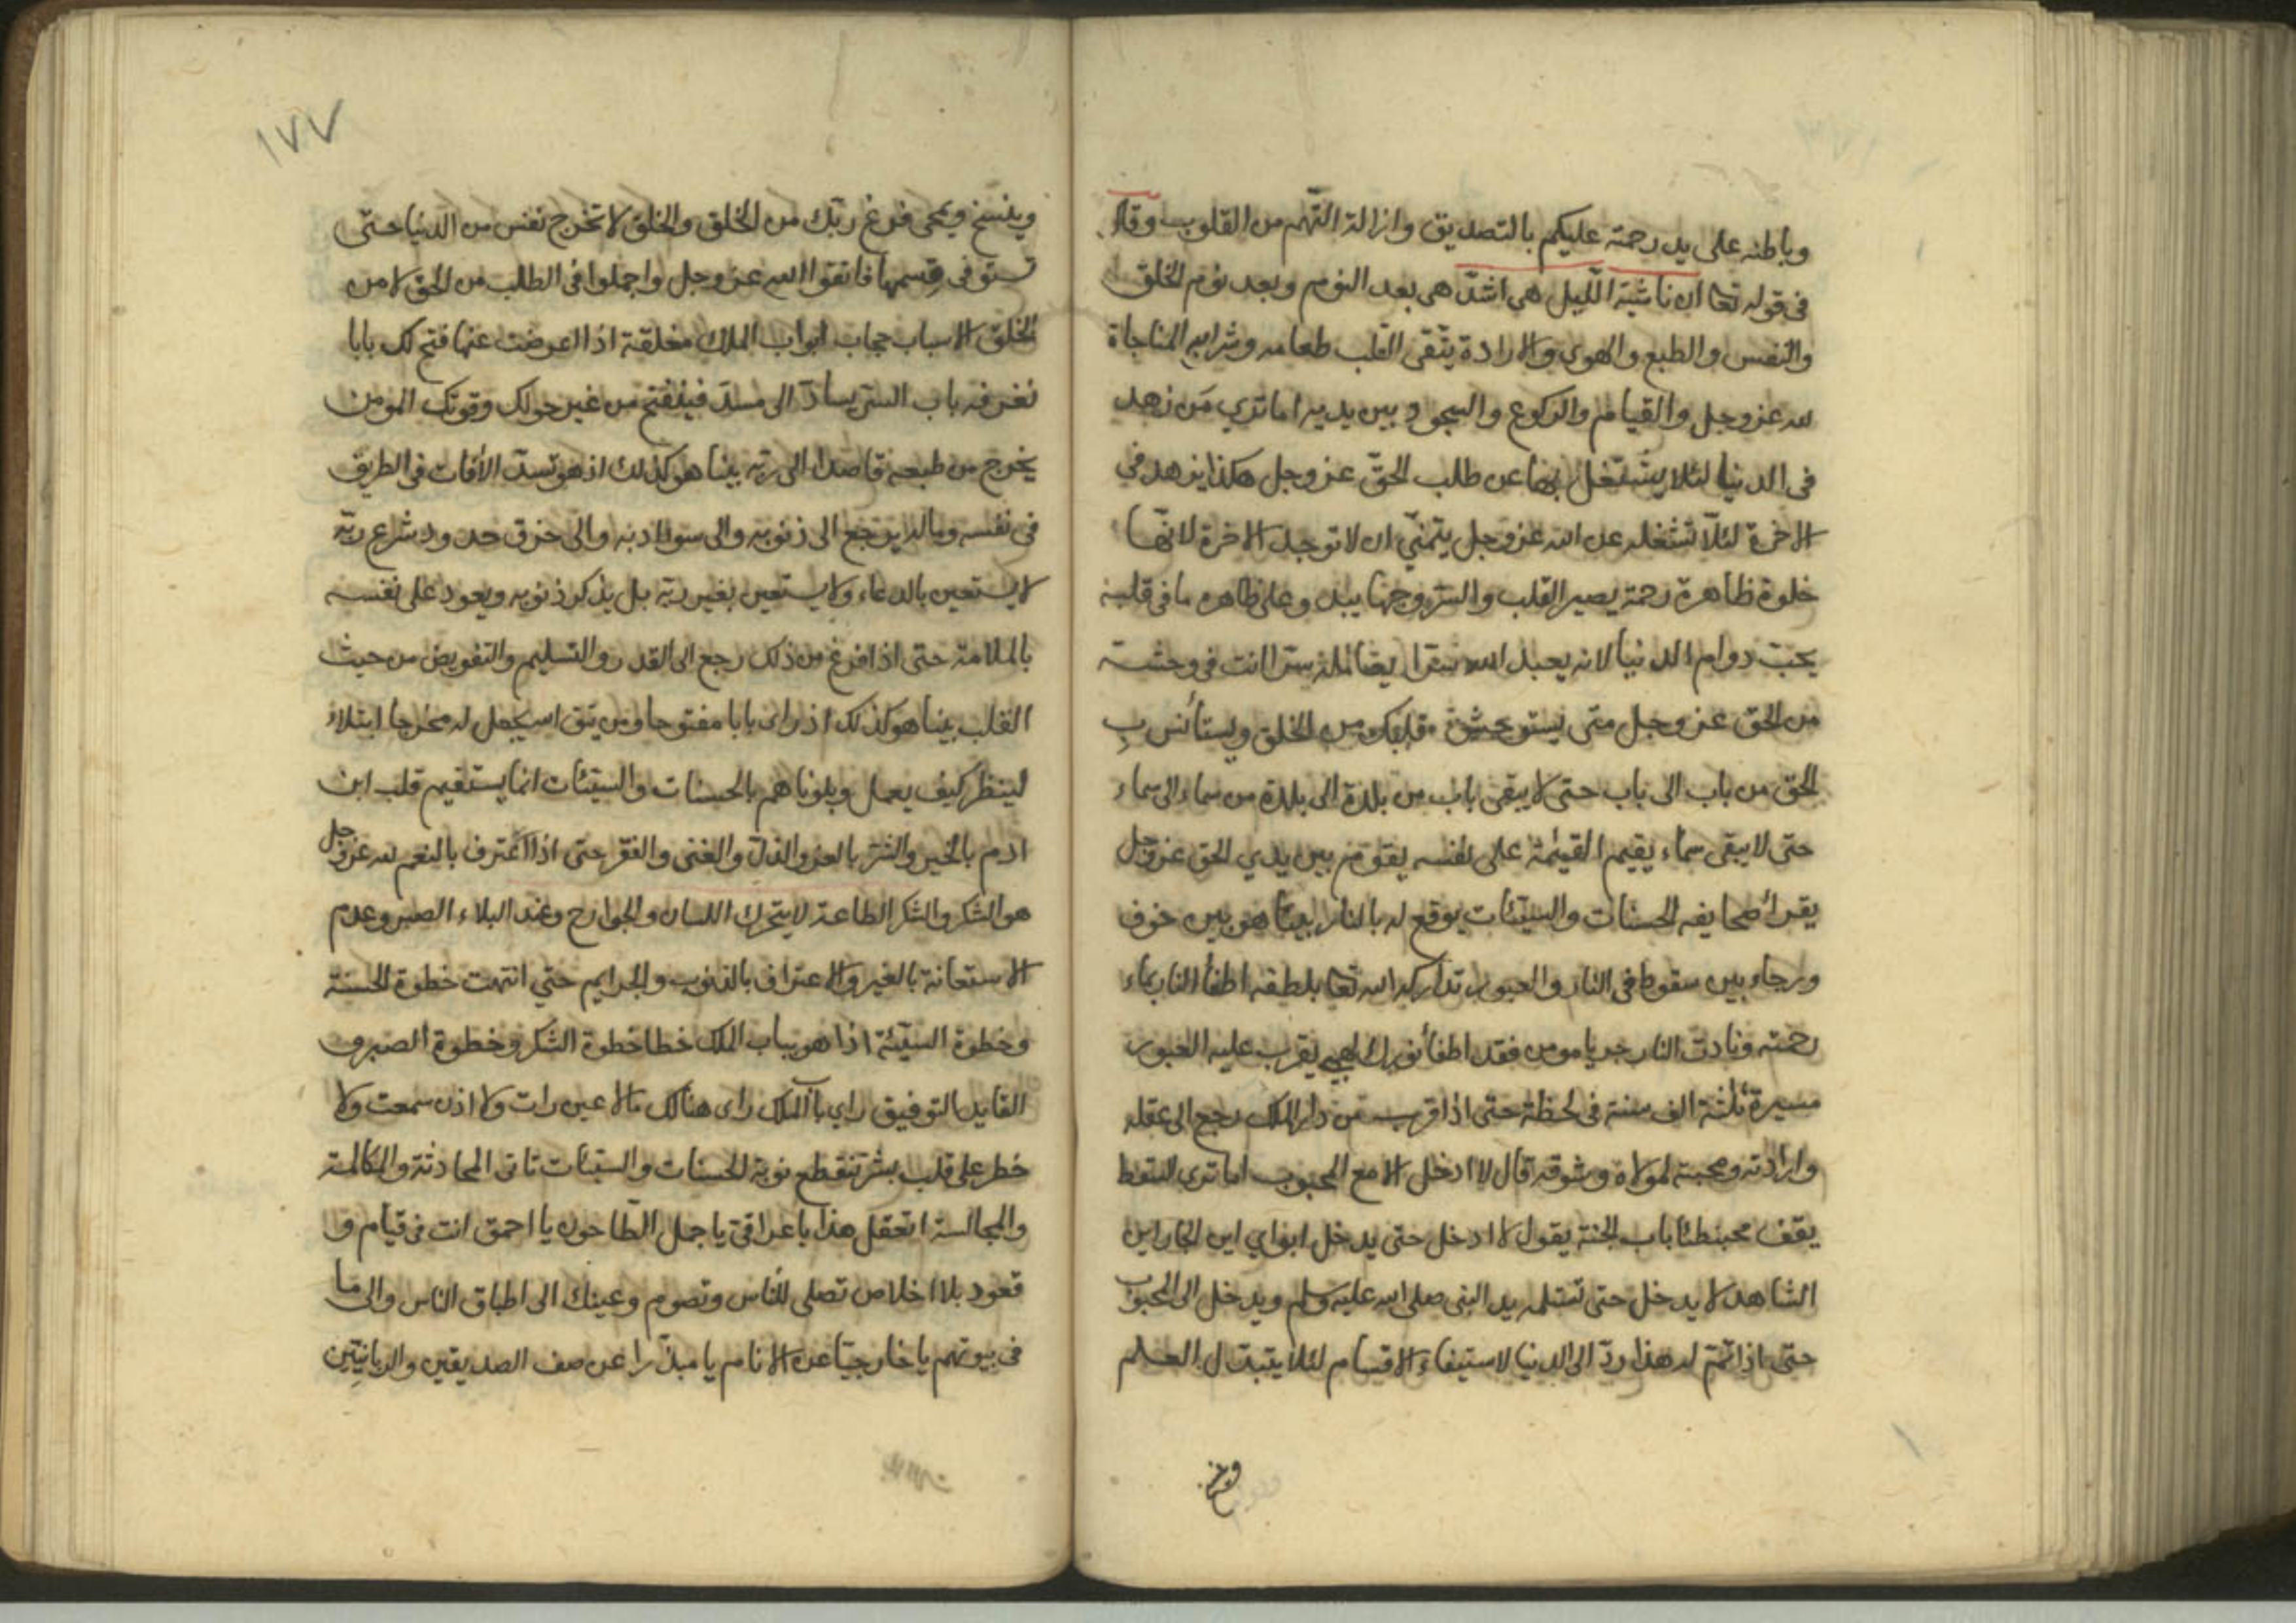 وباطنه على يد رحمته عليكم بالتصديق وازالة التهم من القلوب وقال
فى قوله تعا ان ناشئة الليل هى اشد هى بعد النوم وبعد نوم الخلق
والنفس والطبع والهوى والارادة يتقى القلب طعامه وشرابه المناجاة
لله عز وجل والقيام والركوع والسجود بين يديه اما تري من زهد
فى الدنيا لئلا يشتغل بها عن طلب الحق عز وجل هكذا يزهد في
الاخرة لئلا تشغله عن الله عز وجل يتمني ان لا توجد الاخرة لانها
خلوة ظاهرة رحمة يصير القلب والسر وجها يبد وعلى ظاهره ما فى قلبه
يحب دوام الدنيا لانه يعبد الله سرا ايضا سرا انت فى وحشة
من الحق عز وجل متى يستوحش قلبك من الخلق ويستأنس بِ
الحق من باب الى باب حتى لا يبقى باب من بلدة الى بلدة من سماء الى سماء
حتى لا يبقى سماء يقيم القيمة على نفسه يقوم بين يدي الحق عز وجل
يقرأ صحايفه الحسنات والسيئات يوقع له بالنار بينا هو بين خوف
ورجاء بين سقوط فى النار والعبور تداركه الله تعا بلطفه اطفأ النار بماء
رحمته ونادت النار جز يا مومن فقد اطفأ نورك لهبي يقرب عليه العبور
مسيرة ثلثة الف سنة فى لحظة حتى اذا قرب من دار الملك رجع الى عقله
وارادته ومحبته لمولاه وشوقه قال لا ادخل الا مع المحبوب اما تري السقط
يقف محبنطئا باب الجنة يقول لا ادخل حتى يدخل ابواي اين الجار اين
الشاهد لا يدخل حتى تسلمه يد النبى صلى الله عليه وسلم ويدخل الى المحبوب
حتى اذا تم له هذا رد الى الدنيا لاستيفاء الاقسام لئلا يتبدل العلم
١٧٧
وينسخ ويمحى فرغ ربك من الخلق والخلق لا تخرج نفس من الدنيا حتى
تستوفى قسمها فاتقوا الله عز وجل واجملوا فى الطلب من الحق لا من
الخلق الاسباب حجاب ابواب الملك مغلقة اذا اعرضت عنها فتح لك بابا
تعرفه باب السر يساد الى مسد فينفتح من غير حولك وقوتك المومن
يخرج من طبعه قاصدا الى ربه بينا هو كذلك اذ هو تسد الآفات فى الطريق
فى نفسه وماله يرجع الى ذنوبه والى سوادبه والى خرق حدود شرع ربه
لا يستعين بالدعاء ولا يستعين بغير ربه بل يذكر ذنوبه ويعود على نفسه
بالملامة حتى اذا فرغ من ذلك رجع الى القدر والتسليم والتفويض من حيث
القلب بينا هو كذلك اذ راى بابا مفتوحا ومن يتق الله يجعل له مخرجا ابتلاء
لينظر كيف يعمل وبلوناهم بالحسنات والسيئات انما يستقيم قلب ابن
ادم بالخير والشر بالعز والذل والغنى والفقر حتى اذا اعترف بالنعم لله عز وجل
هو الشكر والشكر الطاعة لا يتحرك اللسان والجوارح وعند البلاء الصبر وعدم
الاستعانة بالغير والاعتراف بالذنوب والجرايم حتي انتهت خطوة الحسنة
وخطوة السيئة اذا هو بباب الملك خطا خطوة الشكر وخطوة الصبر و
القايد التوفيق راي باب الملك راى هنالك ما لا عين رات ولا اذن سمعت ولا
خطر على قلب بشر تنقطع نوبة الحسنات والسيئات تاتى المحادثة والمكالمة
والمجالسة اتعقل هذا يا عراقى يا جمل الطاحون يا احمق انت فى قيام و
قعود بلا اخلاص تصلى للناس وتصوم وعينك الى اطباق الناس والى ما
فى بيوتهم يا خارجيا عن الانام يا مبذرا عن صف الصديقين والربانيين